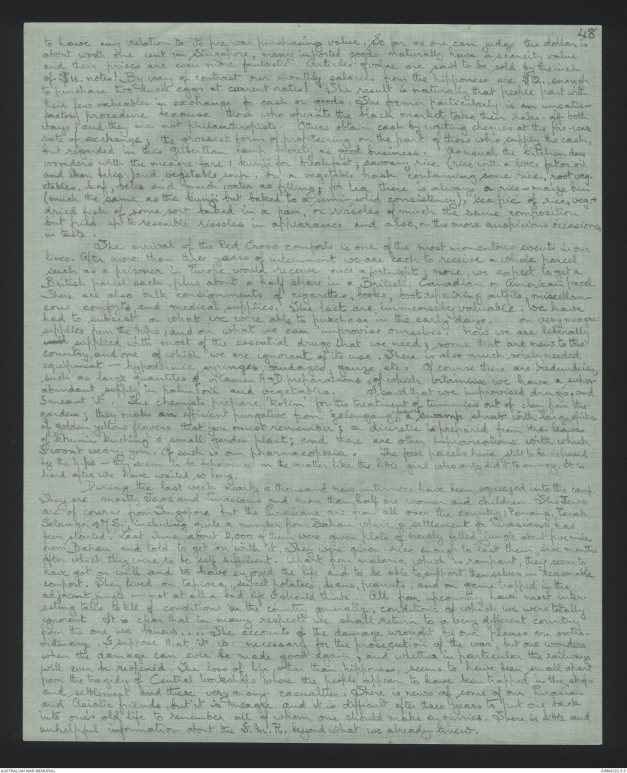 48
to have any relation to its pre war purchasing value. So far as one can judge the dollar is
about worth one cent in Singapore, many imported goods naturally have a scarcity value
and their prices are even more fantastic. Articles of value are said to be sold by the inch
of $10. notes! By way of contrast our monthly salaries from the nipponese are $12., enough
to purchase two duck eggs at current rates! The result is naturally that people part with
their few valuables in exchange for cash or goods. The former particularly is an unsatis-
factory procedure because those who operate the black market take their rake-off both
ways, and they are not philanthropists. Others obtain cash by writing cheques at the pre-war
rate of exchange - the grossest form of profiteering on the part of those who supply the cash,
but regarded in this Gilbertian camp world as good business. As usual the kitchen does
wonders with the meagre fare; kunji for breakfast; savoury rice (rice with a little palm oil
and ikan bilis) and vegetable soup, or a vegetable hash containing some rice, root veg-
etables, leaf, bilis and much water as filling; for tea there is always a rice-maize bun
(much the same as the kunji but baked to a semi-solid consistency), sea pie of rice, veg. &
dried fish of some sort baked in a pan, or rissoles of much the same composition
but fried up to resemble rissoles in appearance and also, on the more auspicious occasions,
in taste.
The arrival of the Red Cross comforts is one of the most momentous events in our
lives. After more than three years of internment we are each to receive a whole parcel
such as a prisoner in Europe would receive once a fortnight; more, we expect to get a
British parcel each, plus about a half share in a British, Canadian or American parcel.
There are also bulk consignments of cigarettes, books, boot repairing outfits, miscellan-
eous comforts and medical supplies. The last are immensely valuable. We have
had to subsist on what we were able to purchase in the early days, on very meagre
supplies from the nips, and on what we can improvise ourselves. Now we are literally
supplied with most of the essential drugs that we need; some that are new to the
country, and one of which we are ignorant of its use. There is also much sorely needed
equipment - hypodermic syringes, bandages, gauze, etc. Of course there are redundancies,
such as large quantities of vitamin A & D preparations, of which vitamins we have a super-
abundant supply in palm oil and vegetables. I said that we improvised drugs, and
I meant it. The chemists prepare "kolin" for the treatment of tummies out of clay from the
gardens; they make an efficient purgative from gelenggang (a swamp shrub with large spikes
of golden yellow flowers that you must remember); a diuretic is prepared from the leaves
of kumis kuching a small garden plant; and there are other improvisations with which
I won't weary you. Of such is our pharmacopoeia. The food parcels have still to be released
by the nips - they seem to be behaving in the matter like the little girl who only did it to annoy. It is
hard after we have waited so long.
During the last week nearly a thousand new internees have been squeezed into the camp.
They are mostly Jews and Eurasians and more than half are women and children. The Jews
are of course from Singapore but the Eurasians are from all over the country; Penang, Perak
Selangor & N.S., including quite a number from Bahau where a settlement for Eurasians has
been started. Last June about 2,000 of them were given plots of newly felled jungle about five miles
from Bahau and told to get on with it. They were given rice enough to last them six months
after which they were to be self sufficient. Apart from malaria which is rampant, they seem to
have got on well and to have enjoyed the life and to be able to support themselves in reasonable
comfort. They lived on tapioca, sweet potatoes, sayur, peanuts, and on game trapped in the
adjacent jungle - not at all a bad life I should think. All from upcountry have most inter-
esting tales to tell of conditions in the country generally, conditions of which we were totally
ignorant. It is clear that in many respects we shall return to a very different country
from the one we knew.... The accounts of the damage wrought by our planes are extra-
ordinary. I suppose that it is necessary for the prosecution of the war, but one wonders
when the damage can ever be made good again, and whether in particular the railways
will ever be reopened. The loss of life other than nipponese, seems to have been small apart
from the tragedy of Central Workshops where the people appear to have been trapped in the shops
and settlement and there very many casualties. There is news of some of our Eurasian
and Asiatic friends, but it is meagre and it is difficult after three years to put one back
into one's old life to remember all of whom one should make enquiries. There is little and
unhelpful information about the F.M.R. beyond what we already knew.
AUSTRALIAN WAR MEMORIAL